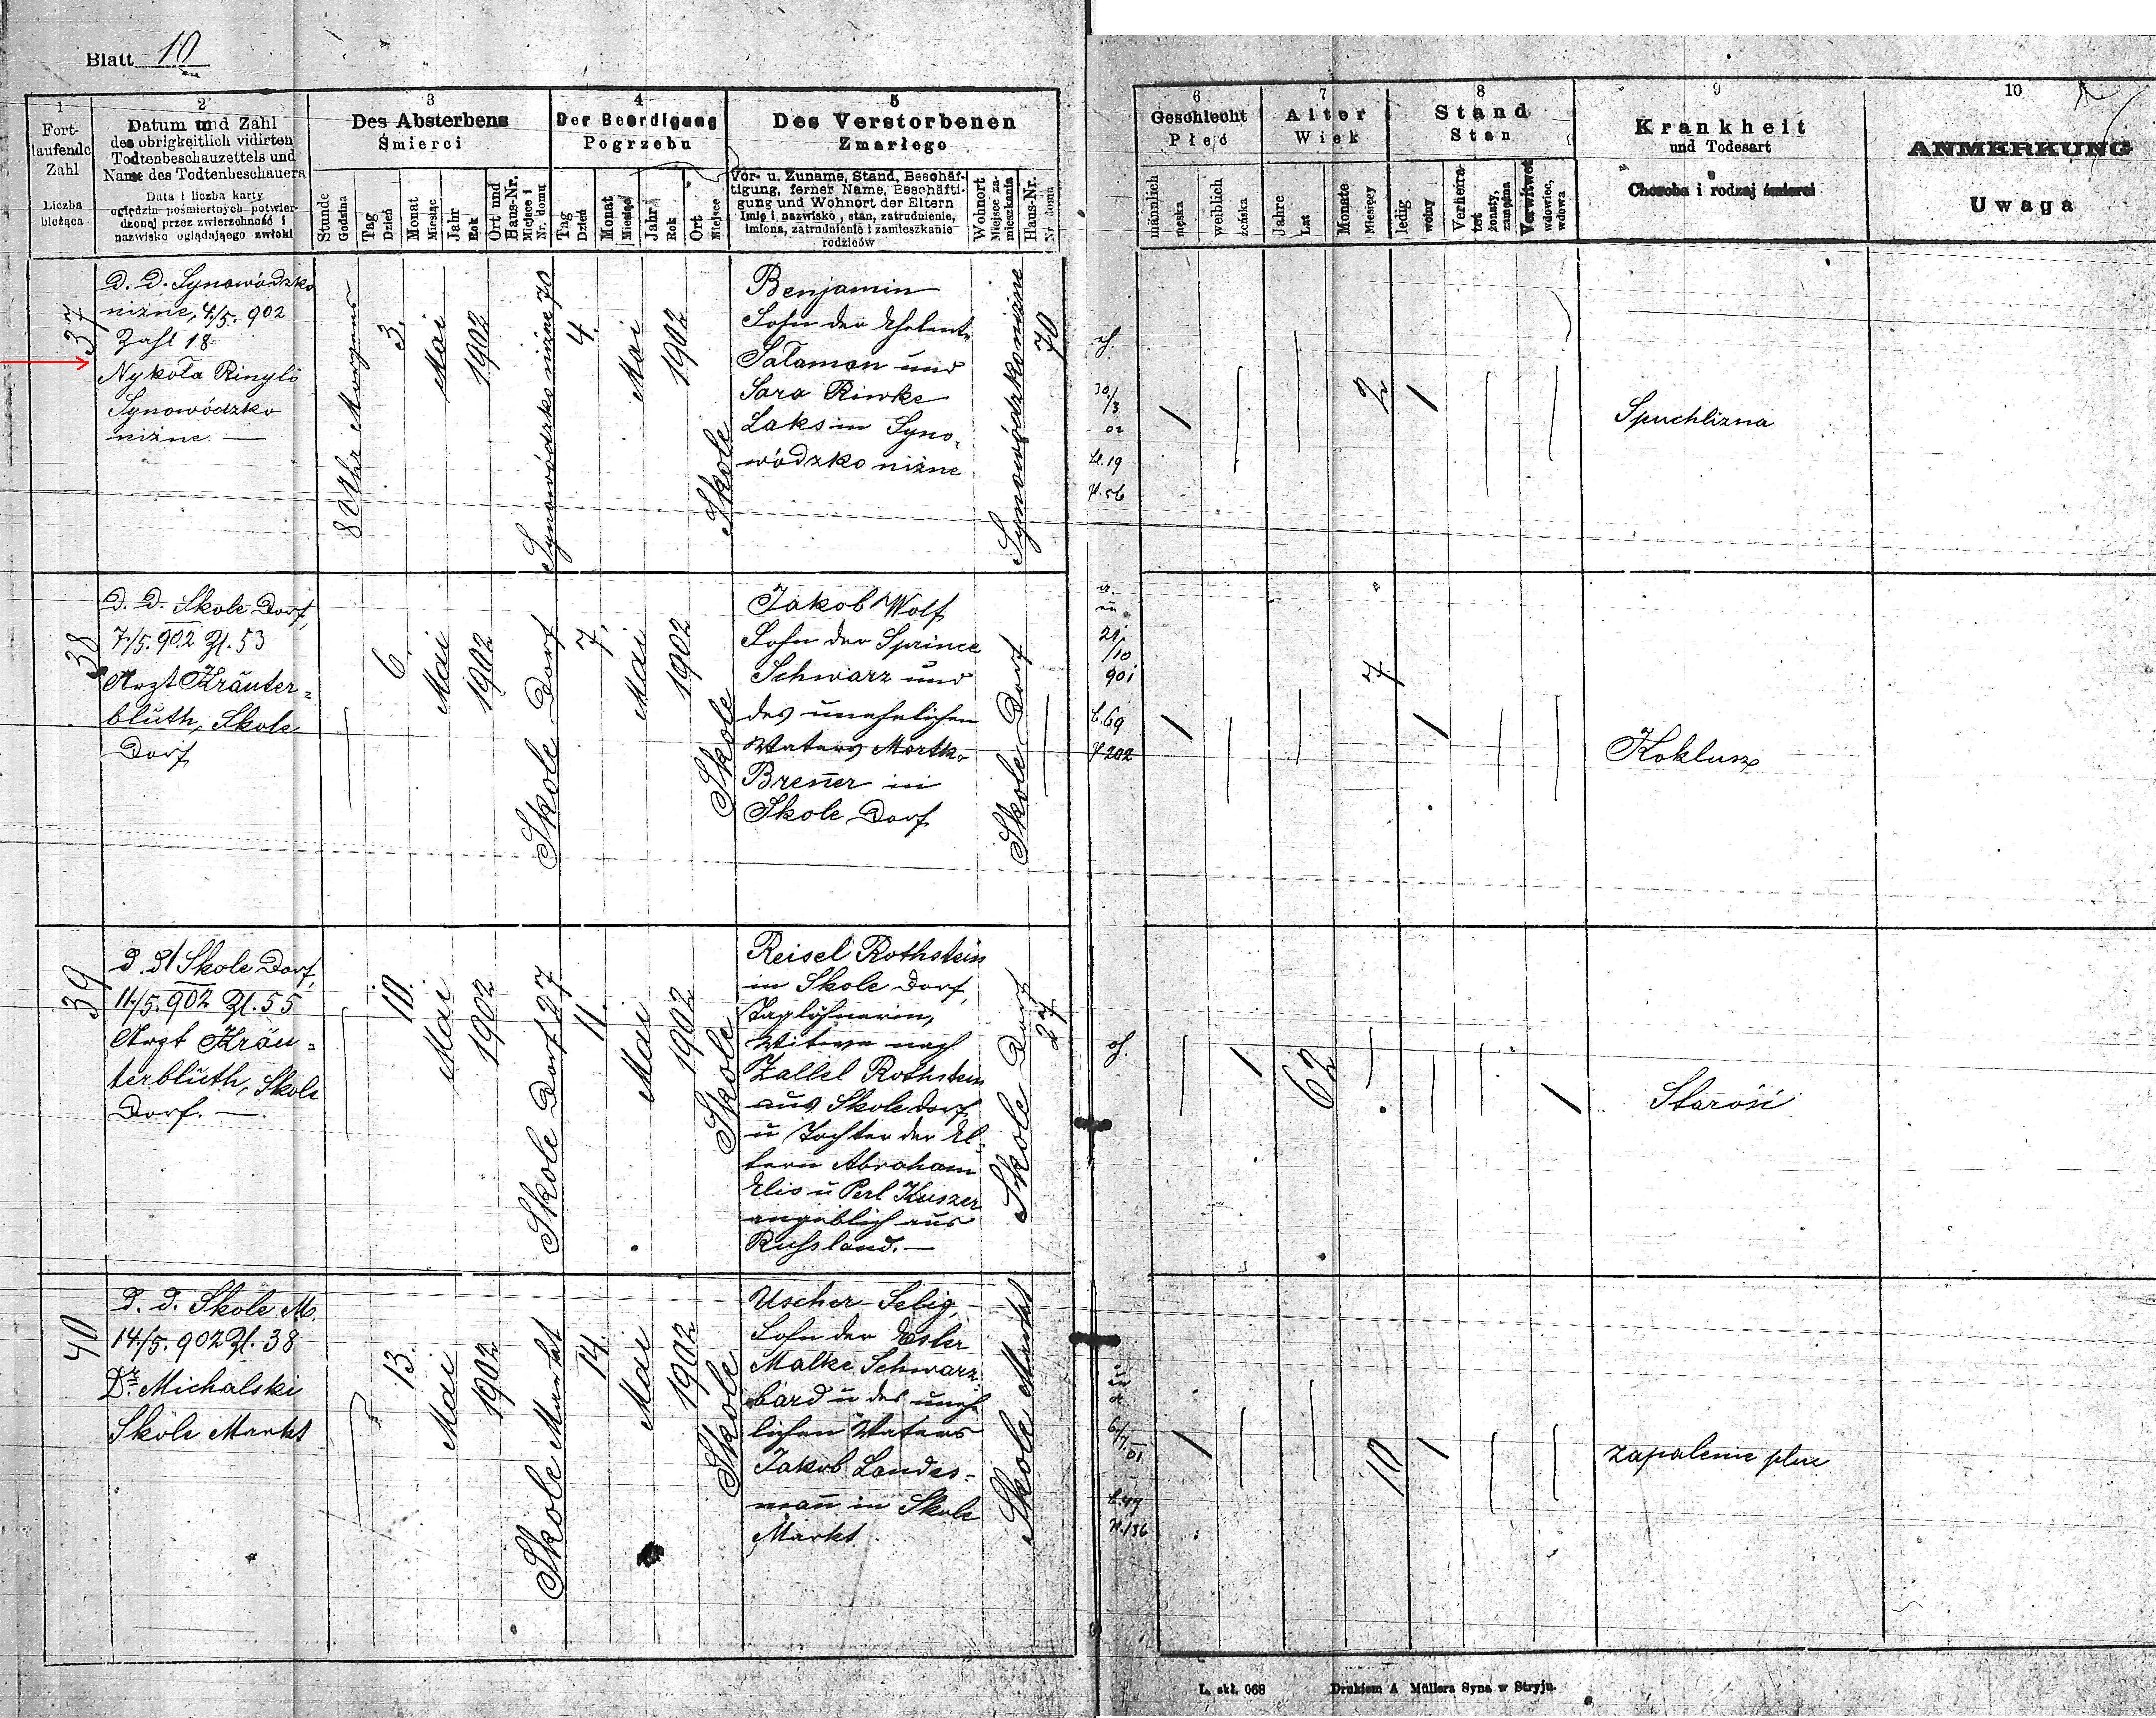 Blatt 10
1
Fort-
laufende
Zahl
Liczba
bieżąca
2
Datum und Zahl
des obrigkeitlich vidirten
Todtenbeschauzettels und
Name des Todtenbeschauers
Data i liczba karty
oględzin pośmiertnych potwier-
dzonej przez zwierzchność i
nazwisko oglądającego zwłoki
3
Des Absterbens
Śmierci
Stunde
Godzina
Tag
Dzień
Monat
Miesiąc
Jahr
Rok
Ort und
Haus-Nr.
Miejsce i
Nr. domu
4
Der Beerdigung
Pogrzebu
Tag
Dzień
Monat
Miesiąc
Jahr
Rok
Ort
Miejsce
5
Des Verstorbenen
Zmarłego
Vor- u. Zuname, Stand, Beschäf-
tigung, ferner Name, Beschäfti-
gung und Wohnort der Eltern
Imię i nazwisko, stan, zatrudnienie,
imiona, zatrudnienie i zamieszkanie
rodziców
Wohnort
Miejsce za-
mieszkania
Haus-Nr.
Nr domu
6
Geschlecht
Płeć
männlich
męska
weiblich
żeńska
7
Alter
Wiek
Jahre
Lat
Monate
Miesięcy
8
Stand
Stan
ledig
wolny
Verheira-
tet
żonaty,
zamężna
Verwitwet
wdowiec,
wdowa
9
Krankheit
und Todesart
Choroba i rodzaj śmierci
10
ANMERKUNG
Uwaga
37
D. D. Synowódzko
niżne, 4./5. 902
Zahl 18
Nykoła Rinyło
Synowódzko
niżne. —
8 Uhr Morgens
3.
Mai
1902
Synowódzko niżne 70
4.
Mai
1902
Skole
Benjamin
Sohn der Eheleute
Salamon und
Sara Riwke
Laks in Syno-
wódzko niżne
Synowódzko niżne
70
30./3
02
Bl. 19
P. 56
2
Spuchlizna
38
D. D. Skole Dorf,
7./5. 902 Zl. 53
Arzt Kräuter-
blüth, Skole
Dorf
6.
Mai
1902
Skole Dorf
7.
Mai
1902
Skole
Jakob Wolf
Sohn der Sprince
Schwarz und
des unehelichen
Vaters Mortko
Breñer in
Skole Dorf
Skole Dorf
21.
/10
901
B. 69
P 202
7
Koklusz
39
D. D. Skole Dorf,
11./5. 902 Zl. 55
Arzt Kräu-
terblüth, Skole
Dorf. —
10.
Mai
1902
Skole Dorf 27
11.
Mai
1902
Skole
Reisel Rothstein
in Skole Dorf,
Taglöhnerin,
Witwe nach
Zallel Rothstein
aus Skole Dorf
u Tochter der El-
tern Abraham
Elio u Perl Kuszer
angeblich aus
Russland. —
Skole Dorf
27
62
Starość
40
D. D. Skole M.
14./5. 902 Zl. 38
Dr. Michalski
Skole Markt
13.
Mai
1902
Skole Markt
14.
Mai
1902
Skole
Uscher Selig,
Sohn der Ester
Malke Schwarz-
bard u des unehe-
lichen Vaters
Jakob Landes-
mañ in Skole
Markt
Skole Markt
6./7.
01
B. 44
P. 136
10
zapalenie płuc
L. skł. 068
Drukiem A Müllera Syna w Stryju.